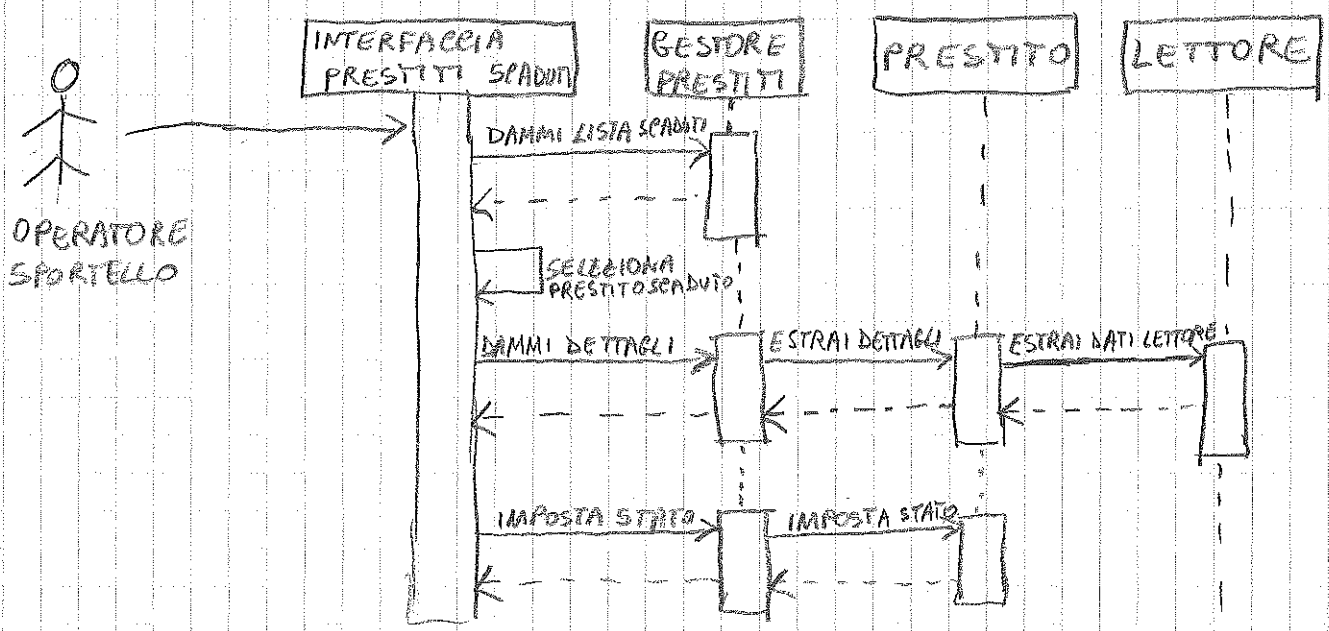 INTERFACCIA
PRESTITI SCADUTI
GESTORE
PRESTITI
PRESTITO
LETTORE
OPERATORE
SPORTELLO
DAMMI LISTA SCADUTI
SELEZIONA
PRESTITO SCADUTO
DAMMI DETTAGLI
ESTRAI DETTAGLI
ESTRAI DATI LETTORE
IMPOSTA STATO
IMPOSTA STATO